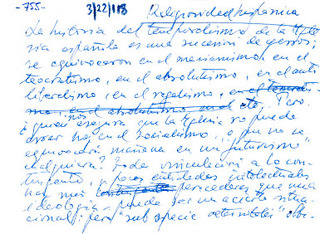 -755- 3/22/118 Religiosidad hispánica
La historia del temporalismo de la Igle-
sia española es una sucesión de yerros;
se equivocaron en el mesianismo, en el
teocratismo, en el absolutismo, en el anti
liberalismo, en el regalismo, en el
Pero
¿quién nos asegura que la Iglesia no puede
errar hoy en el socialismo, o que no se
equivocará mañana en un futurismo
cualquiera? Toda vinculación a lo con-
tingente, y pocas entidades intelectuales
hay más perecederas que una
ideología, puede ser un acierto situa-
cional; pero "sub specie aeternitatis"